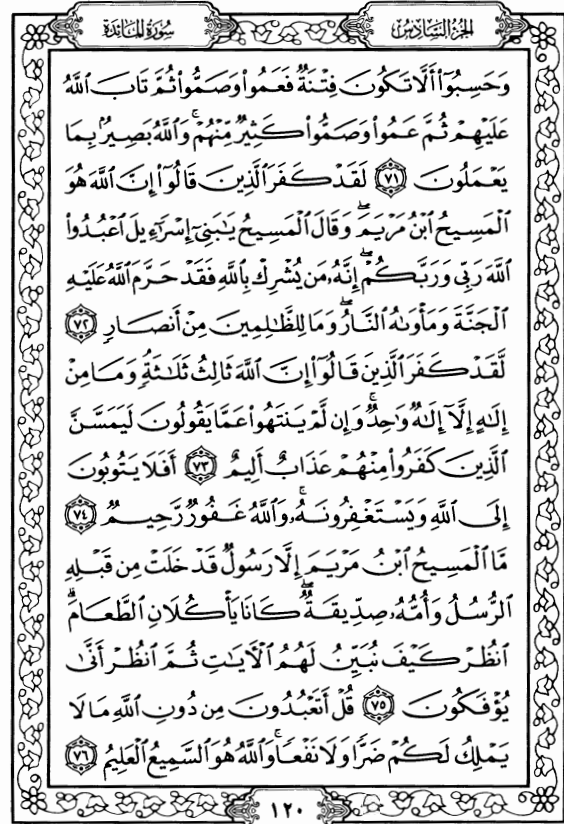 الجزء السادس
سورة المائدة
وَحَسِبُوٓا۟ أَلَّا تَكُونَ فِتْنَةٌ فَعَمُوا۟ وَصَمُّوا۟ ثُمَّ تَابَ ٱللَّهُ
عَلَيْهِمْ ثُمَّ عَمُوا۟ وَصَمُّوا۟ كَثِيرٌ مِّنْهُمْ ۚ وَٱللَّهُ بَصِيرٌۢ بِمَا
يَعْمَلُونَ ٧١ لَقَدْ كَفَرَ ٱلَّذِينَ قَالُوٓا۟ إِنَّ ٱللَّهَ هُوَ
ٱلْمَسِيحُ ٱبْنُ مَرْيَمَ ۖ وَقَالَ ٱلْمَسِيحُ يَٰبَنِىٓ إِسْرَٰٓءِيلَ ٱعْبُدُوا۟
ٱللَّهَ رَبِّى وَرَبَّكُمْ ۖ إِنَّهُۥ مَن يُشْرِكْ بِٱللَّهِ فَقَدْ حَرَّمَ ٱللَّهُ عَلَيْهِ
ٱلْجَنَّةَ وَمَأْوَىٰهُ ٱلنَّارُ ۖ وَمَا لِلظَّٰلِمِينَ مِنْ أَنصَارٍ ٧٢
لَّقَدْ كَفَرَ ٱلَّذِينَ قَالُوٓا۟ إِنَّ ٱللَّهَ ثَالِثُ ثَلَٰثَةٍ ۘ وَمَا مِنْ
إِلَٰهٍ إِلَّآ إِلَٰهٌ وَٰحِدٌ ۚ وَإِن لَّمْ يَنتَهُوا۟ عَمَّا يَقُولُونَ لَيَمَسَّنَّ
ٱلَّذِينَ كَفَرُوا۟ مِنْهُمْ عَذَابٌ أَلِيمٌ ٧٣ أَفَلَا يَتُوبُونَ
إِلَى ٱللَّهِ وَيَسْتَغْفِرُونَهُۥ ۚ وَٱللَّهُ غَفُورٌ رَّحِيمٌ ٧٤
مَّا ٱلْمَسِيحُ ٱبْنُ مَرْيَمَ إِلَّا رَسُولٌ قَدْ خَلَتْ مِن قَبْلِهِ
ٱلرُّسُلُ وَأُمُّهُۥ صِدِّيقَةٌ ۖ كَانَا يَأْكُلَانِ ٱلطَّعَامَ ۗ
ٱنظُرْ كَيْفَ نُبَيِّنُ لَهُمُ ٱلْءَايَٰتِ ثُمَّ ٱنظُرْ أَنَّىٰ
يُؤْفَكُونَ ٧٥ قُلْ أَتَعْبُدُونَ مِن دُونِ ٱللَّهِ مَا لَا
يَمْلِكُ لَكُمْ ضَرًّا وَلَا نَفْعًا ۚ وَٱللَّهُ هُوَ ٱلسَّمِيعُ ٱلْعَلِيمُ ٧٦
١٢٠